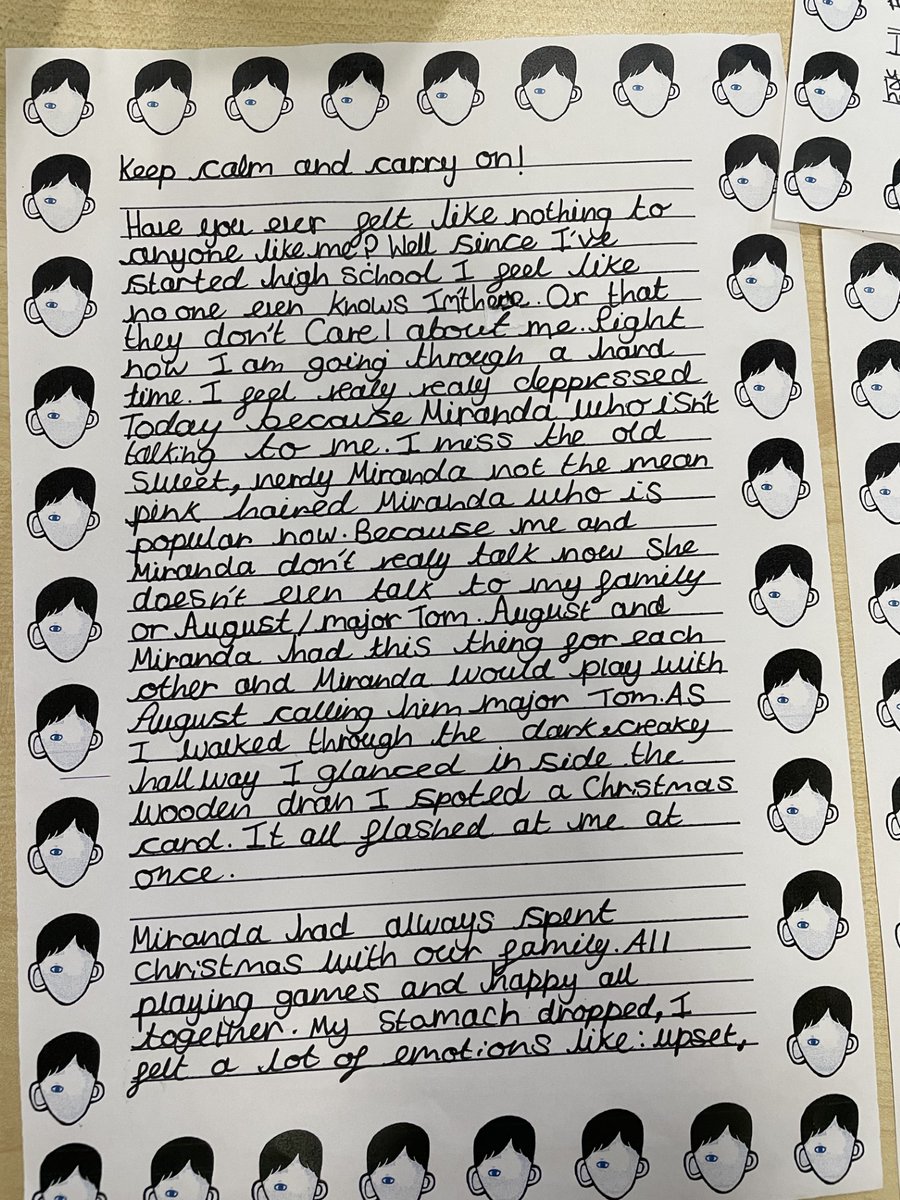 Keep calm and carry on!
Have you ever felt like nothing to
anyone like me? Well since I've
started high school I feel like
no one even knows Im there. Or that
they don't Care about me. Right
now I am going through a hard
time. I feel realy realy deppressed
Today because Miranda who isn't
talking to me. I miss the old
Sweet, nerdy Miranda not the mean
pink haired Miranda who is
popular now. Because me and
Miranda don't realy talk now She
doesn't even talk to my family
or August/major Tom. August and
Miranda had this thing for each
other and Miranda would play with
August calling him major Tom. AS
I walked through the dark creaky
hall way I glanced in side the
wooden draw I spoted a Christmas
card. It all flashed at me at
once.
Miranda had always spent
Christmas with our family. All
playing games and happy all
together. My Stomach dropped, I
felt a lot of emotions like: upset,